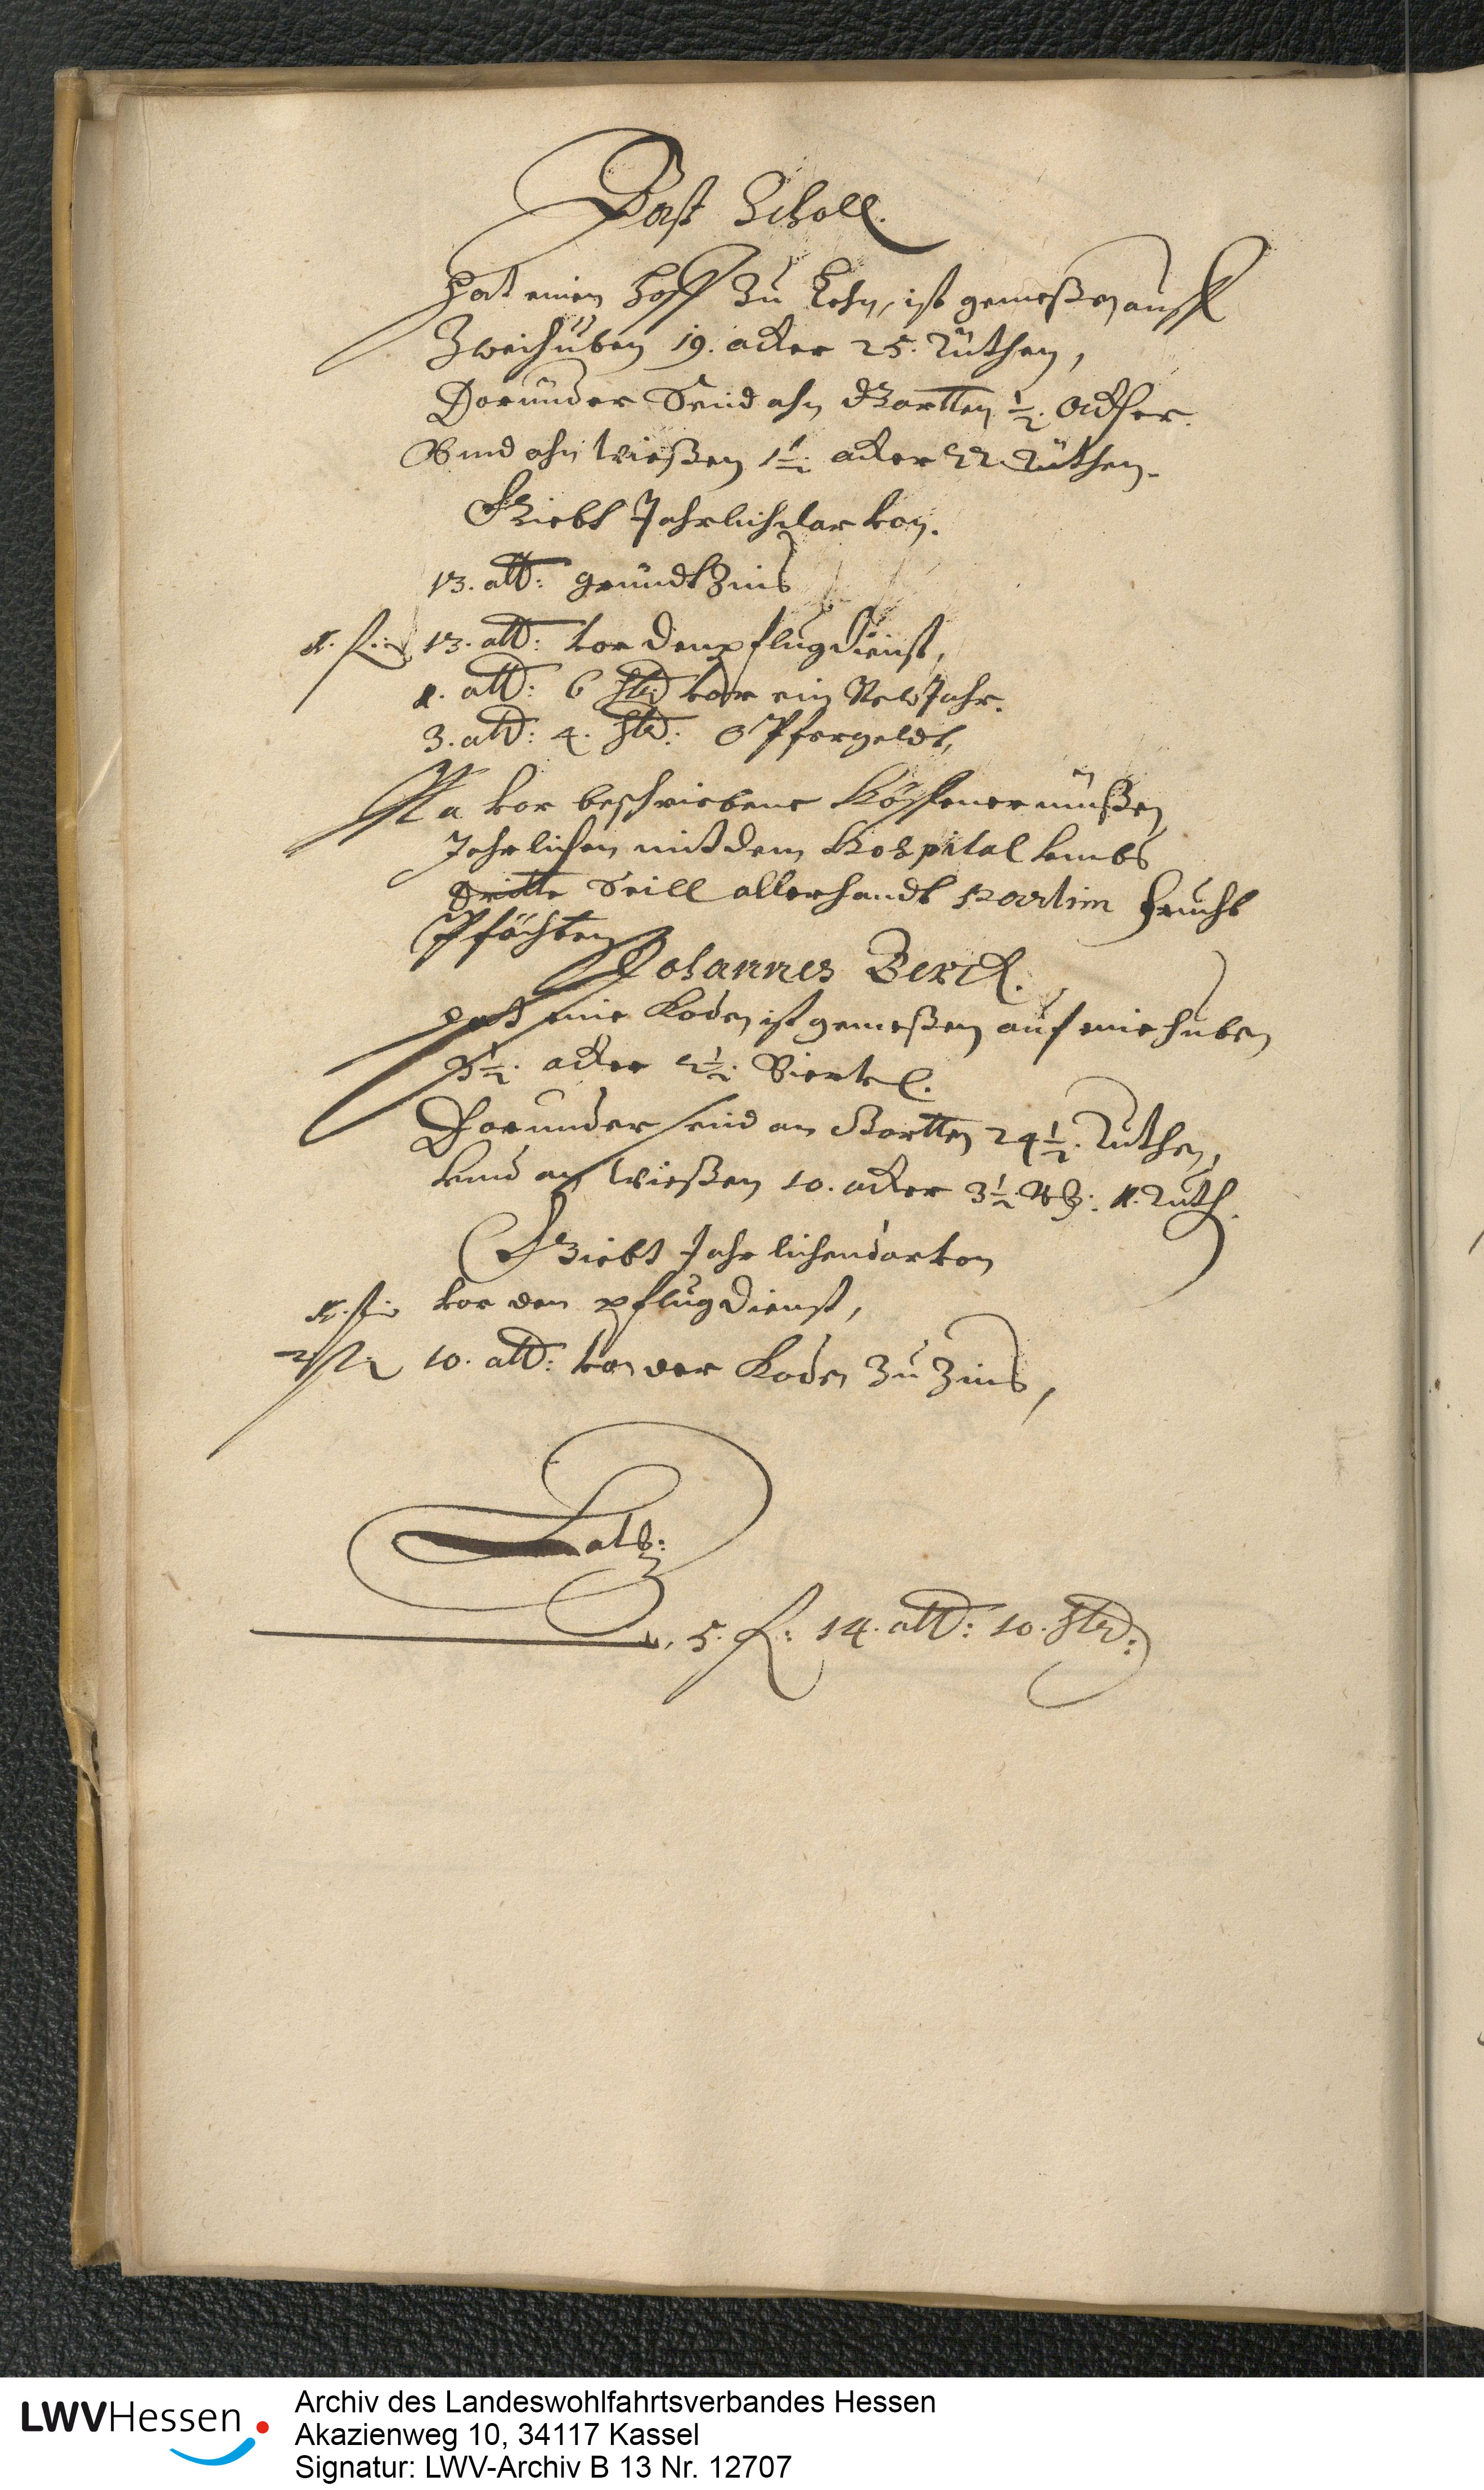 Bast Scholl.
Hat einen Hoff zu Lehn, ist gemeßen auff
Zwei huben 19. acker 25. Ruthen,
Darunder Seind ahn Gartten ½. Acker.
Vnd ahn Wießen 1½. acker 22 Ruthen.
Giebt Jahrlich dar von.
13. alb: grundtZins
1. fl. 13. alb: vor den pflugdienst,
1. alb: 6 hlr vor ein New Jahr.
3. alb: 4. hlr: Opfergeldt,
NB a vor beschriebene Höffener müßen
Jehrlichen mit dem Hospital vmbs
dritte Seill allerhandt partim frucht
Pfächten
Johannes Berck.
Hat eine Koden ist gemeßen auf eine huben
½. acker 2½. Viertel.
Darunder seind an Gartten 24½. Ruthen,
vnd an Wießen 10. acker 3½ 1. Ruth.
Giebt Jahrlichen darvon
vor den pflugdienst,
10. alb: von der Koden zu Zins,
Lats:
5. fl: 14. alb: 10. hlr:
LWVHessen
Archiv des Landeswohlfahrtsverbandes Hessen
Akazienweg 10, 34117 Kassel
Signatur: LWV-Archiv B 13 Nr. 12707